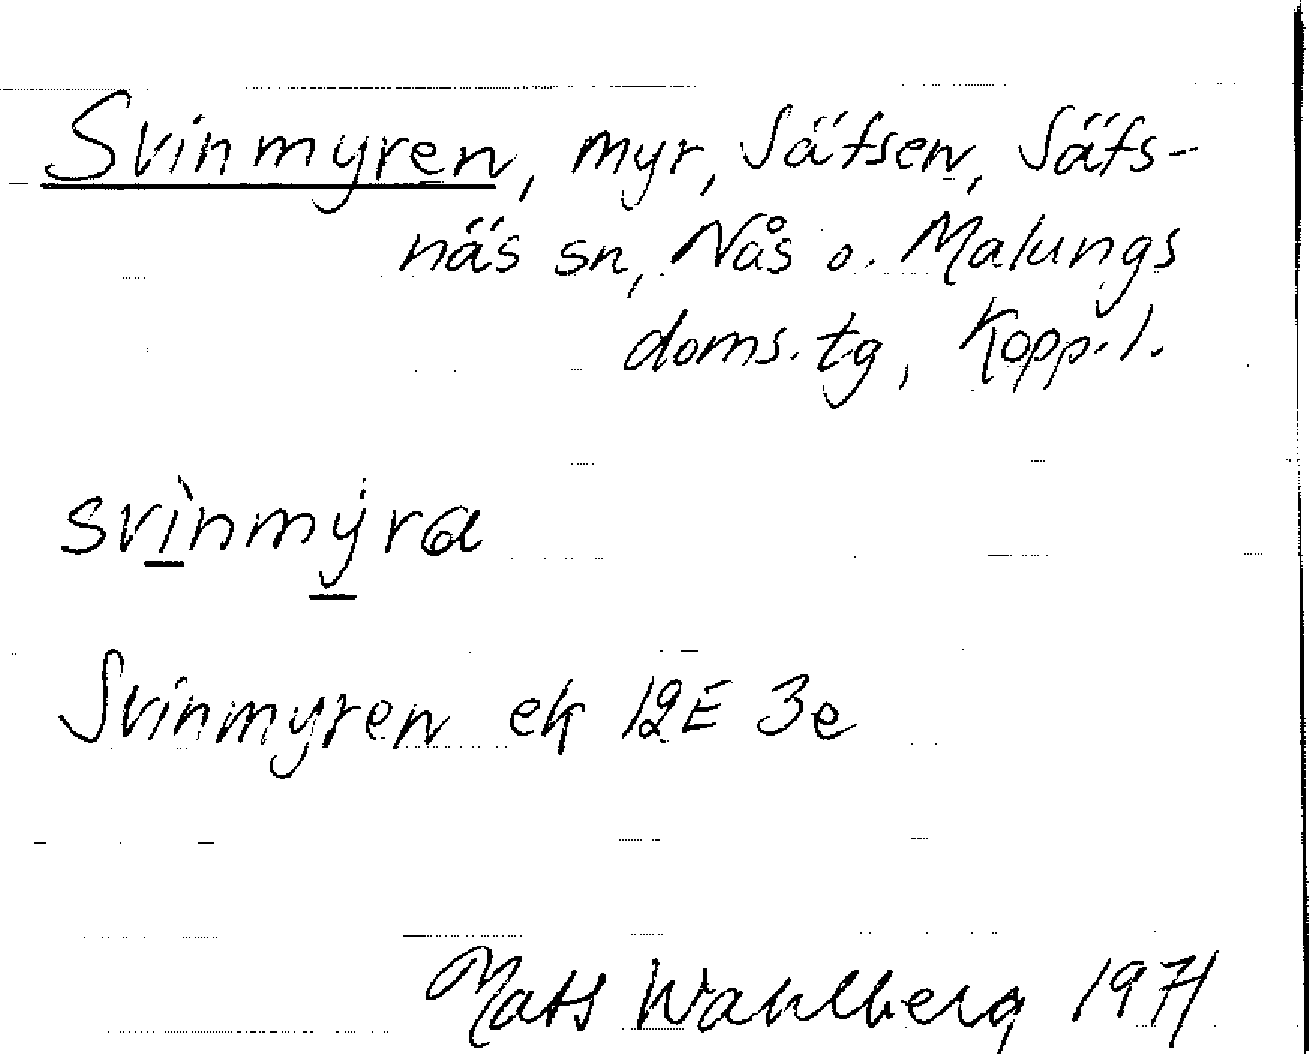 Svinmyren, myr, Säfsen, Säfs-
näs sn, Nås o. Malungs
doms. tg, Kopp. l.
svìnmýra
Svinmyren ek 12E 3e
Mats Wahlberg 1971